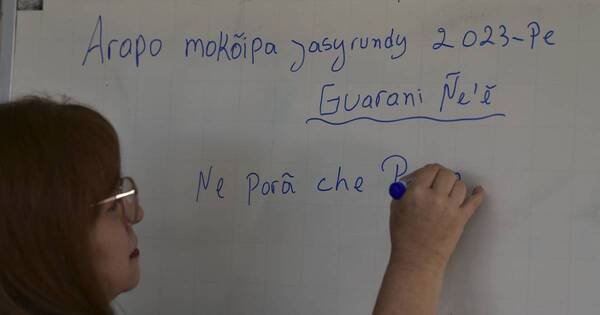 Arapo mokõipa jasyrundy 2023-Pe
Guarani Ñe'ẽ
Ne porã che